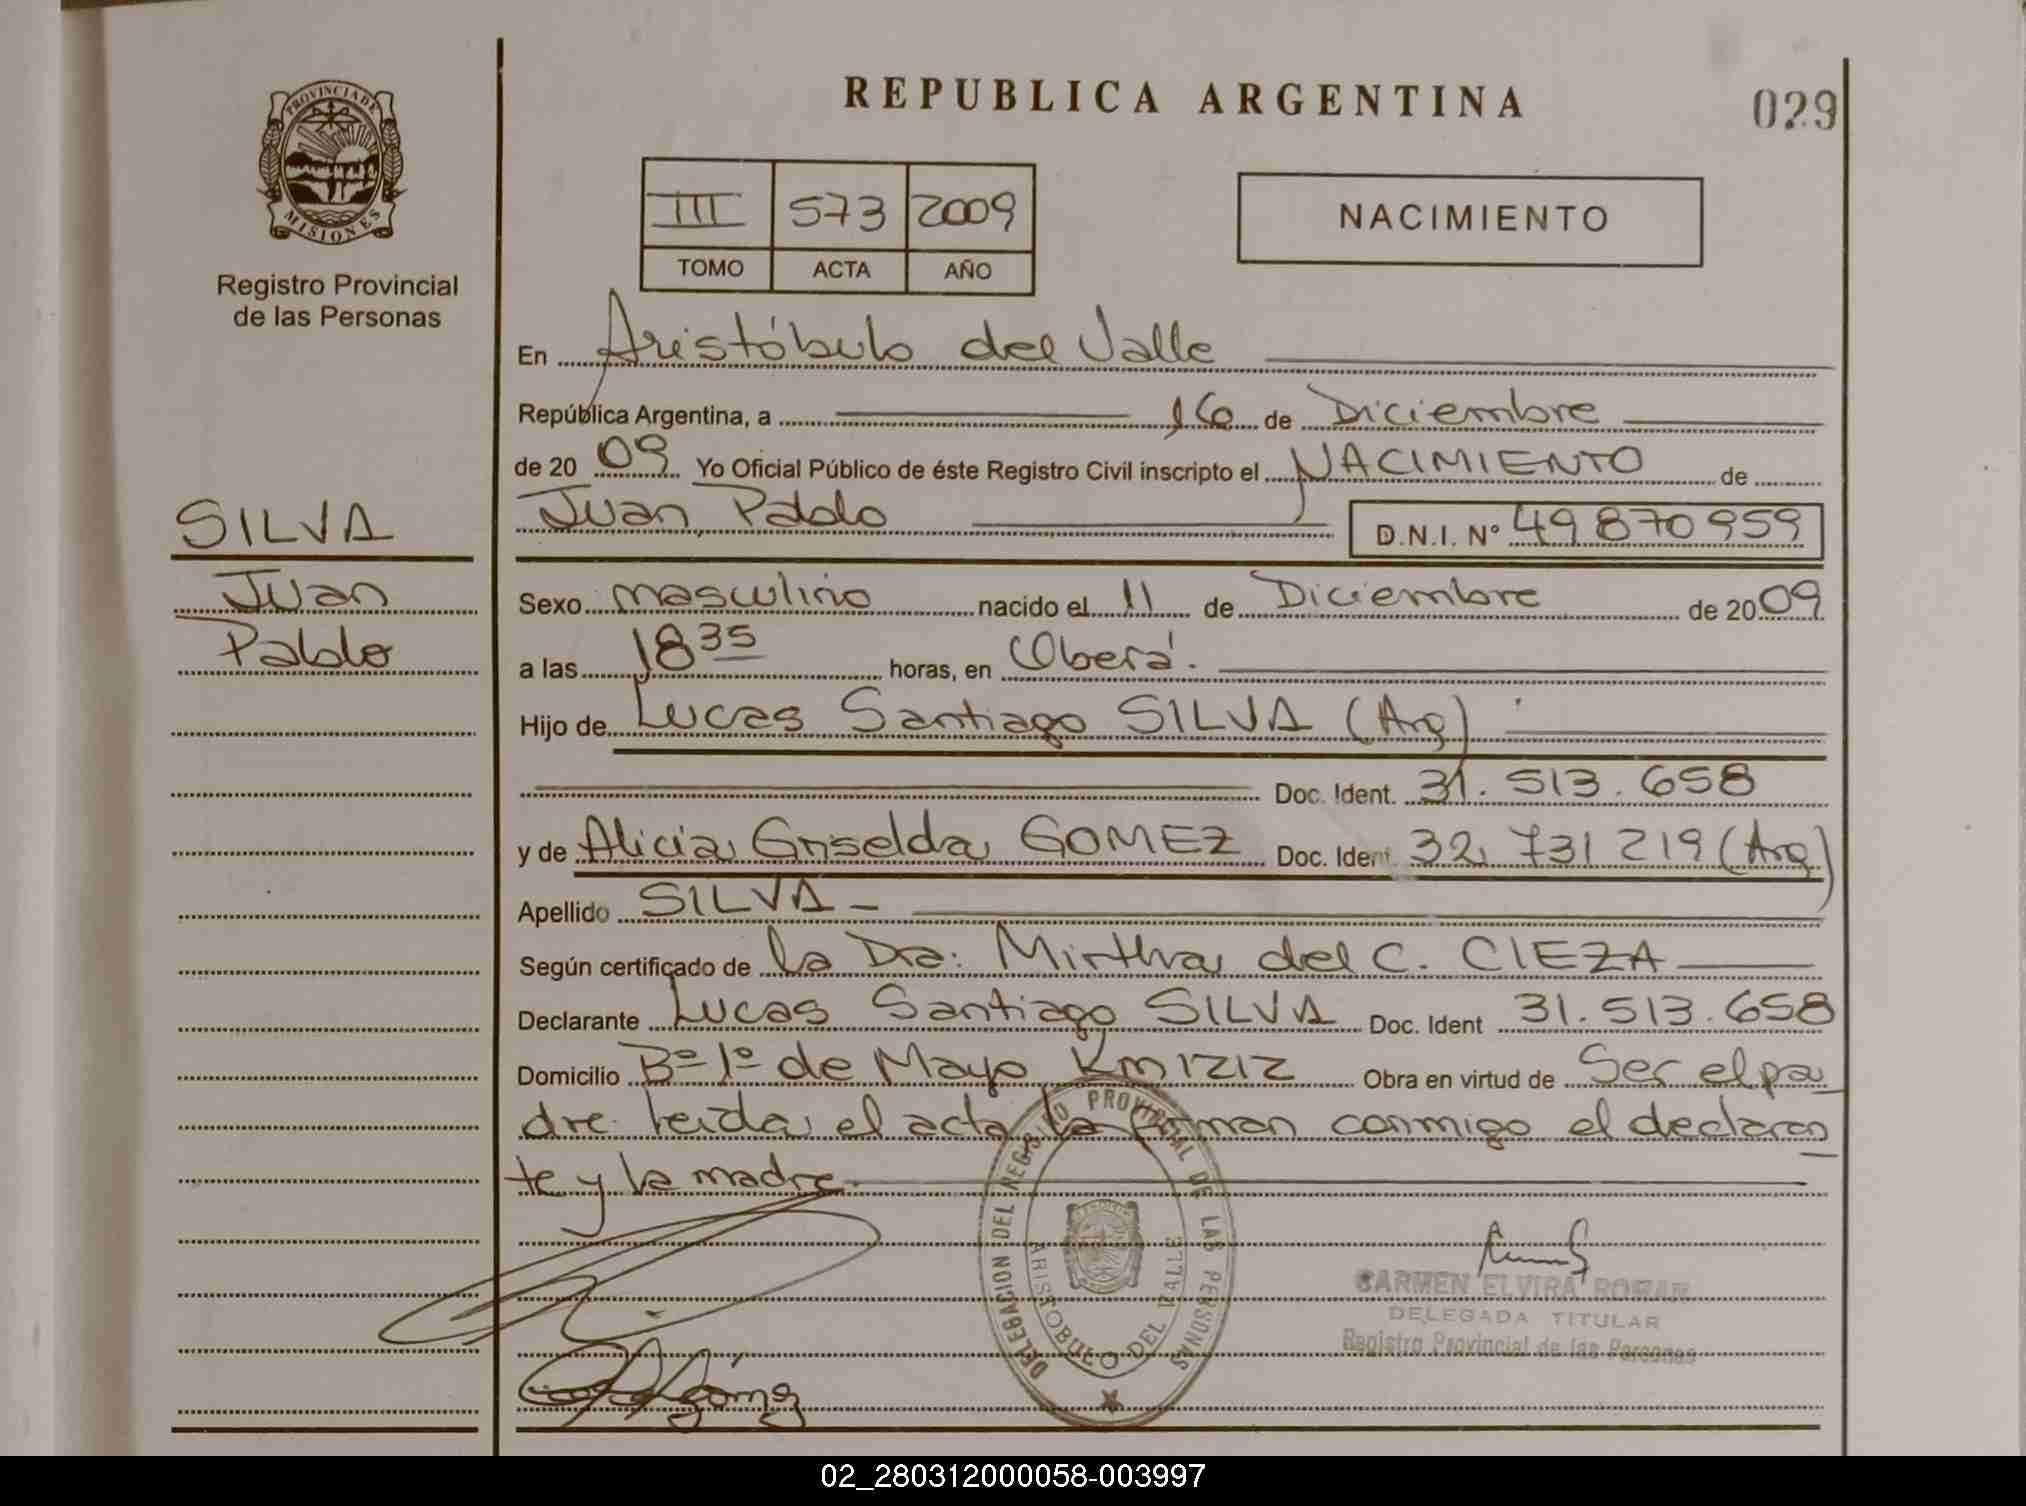 REPUBLICA ARGENTINA
029
PROVINCIA DE
MISIONES
Registro Provincial
de las Personas
III 573 2009
TOMO ACTA AÑO
NACIMIENTO
En Aristóbulo del Valle
República Argentina, a 16 de Diciembre
de 20 09 Yo Oficial Público de éste Registro Civil inscripto el NACIMIENTO de
Juan Pablo D.N.I. Nº 49 870 959
SILVA
Juan
Pablo
Sexo masculino nacido el 11 de Diciembre de 20 09
a las 18 35 horas, en Oberá.
Hijo de Lucas Santiago SILVA (Arg)
Doc. Ident. 31.513.658
y de Alicia Griselda GOMEZ Doc. Ident. 32.731 219 (Arg)
Apellido SILVA -
Según certificado de la Dra: Mirtha del C. CIEZA
Declarante Lucas Santiago SILVA Doc. Ident 31.513.658
Domicilio Bº 1º de Mayo Km 1212 Obra en virtud de Ser el pa
dre. leida el acta la firman conmigo el declaran
te y la madre.
DELEGACION DEL REGISTRO PROVINCIAL DE LAS PERSONAS
ARISTOBULO DEL VALLE
CARMEN ELVIRA ROMAN
DELEGADA TITULAR
Registro Provincial de las Personas
Gómez
02_280312000058-003997